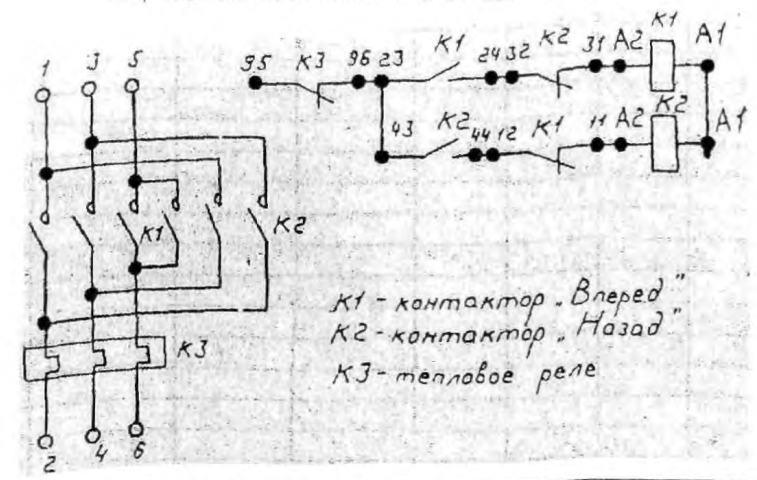 1 3 5
95 К3 96 23 К1 24 32 К2 31 А2 К1 А1
43 К2 44 12 К1 11 А2 К2 А1
К1 К2
К3
2 4 6
К1 - контактор „Вперед”
К2 - контактор „Назад”
К3 - тепловое реле